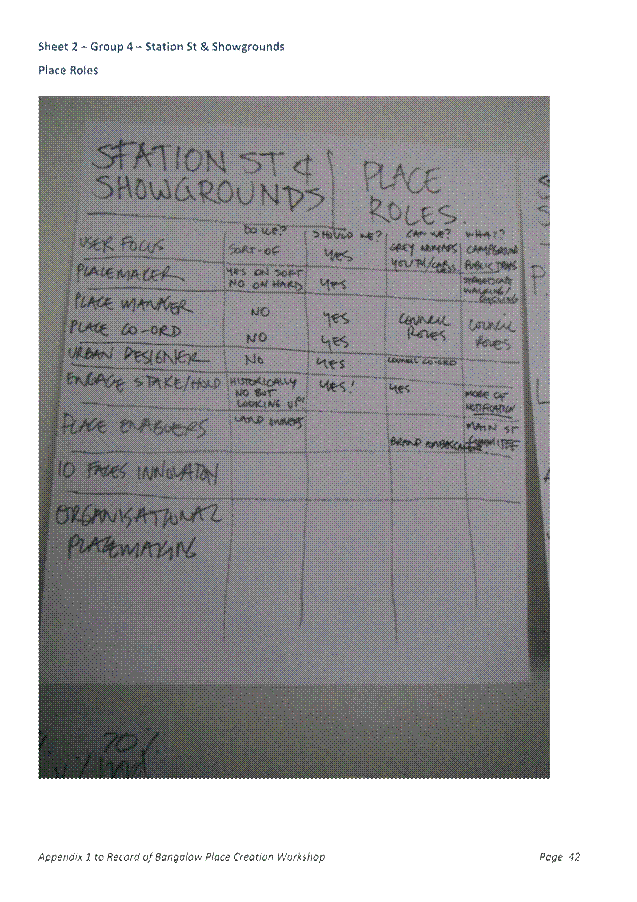 Sheet 2 – Group 4 – Station St & Showgrounds
Place Roles
STATION ST & SHOWGROUNDS
PLACE ROLES.
DO WE? SHOULD WE? CAN WE? WHAT?
USER FOCUS SORT-OF YES GREY NOMADS YOUTH/ CAMPGROUND
PLACEMAKER YES ON SOFT NO ON HARD YES
PLACE MANAGER NO YES COUNCIL ROLES COUNCIL ROLES
PLACE CO-ORD NO YES
URBAN DESIGNER NO YES COUNCIL CO-ORD
ENGAGE STAKE/HOLD HISTORICALLY NO BUT LOOKING UP! YES! YES MORE OF NOTIFICATION
PLACE ENABLERS LAND OWNERS BRAND MAIN ST COMMITTEE
10 FACES INNOVATION
ORGANISATIONAL
PLACEMAKING
70%
Appendix 1 to Record of Bangalow Place Creation Workshop Page 42